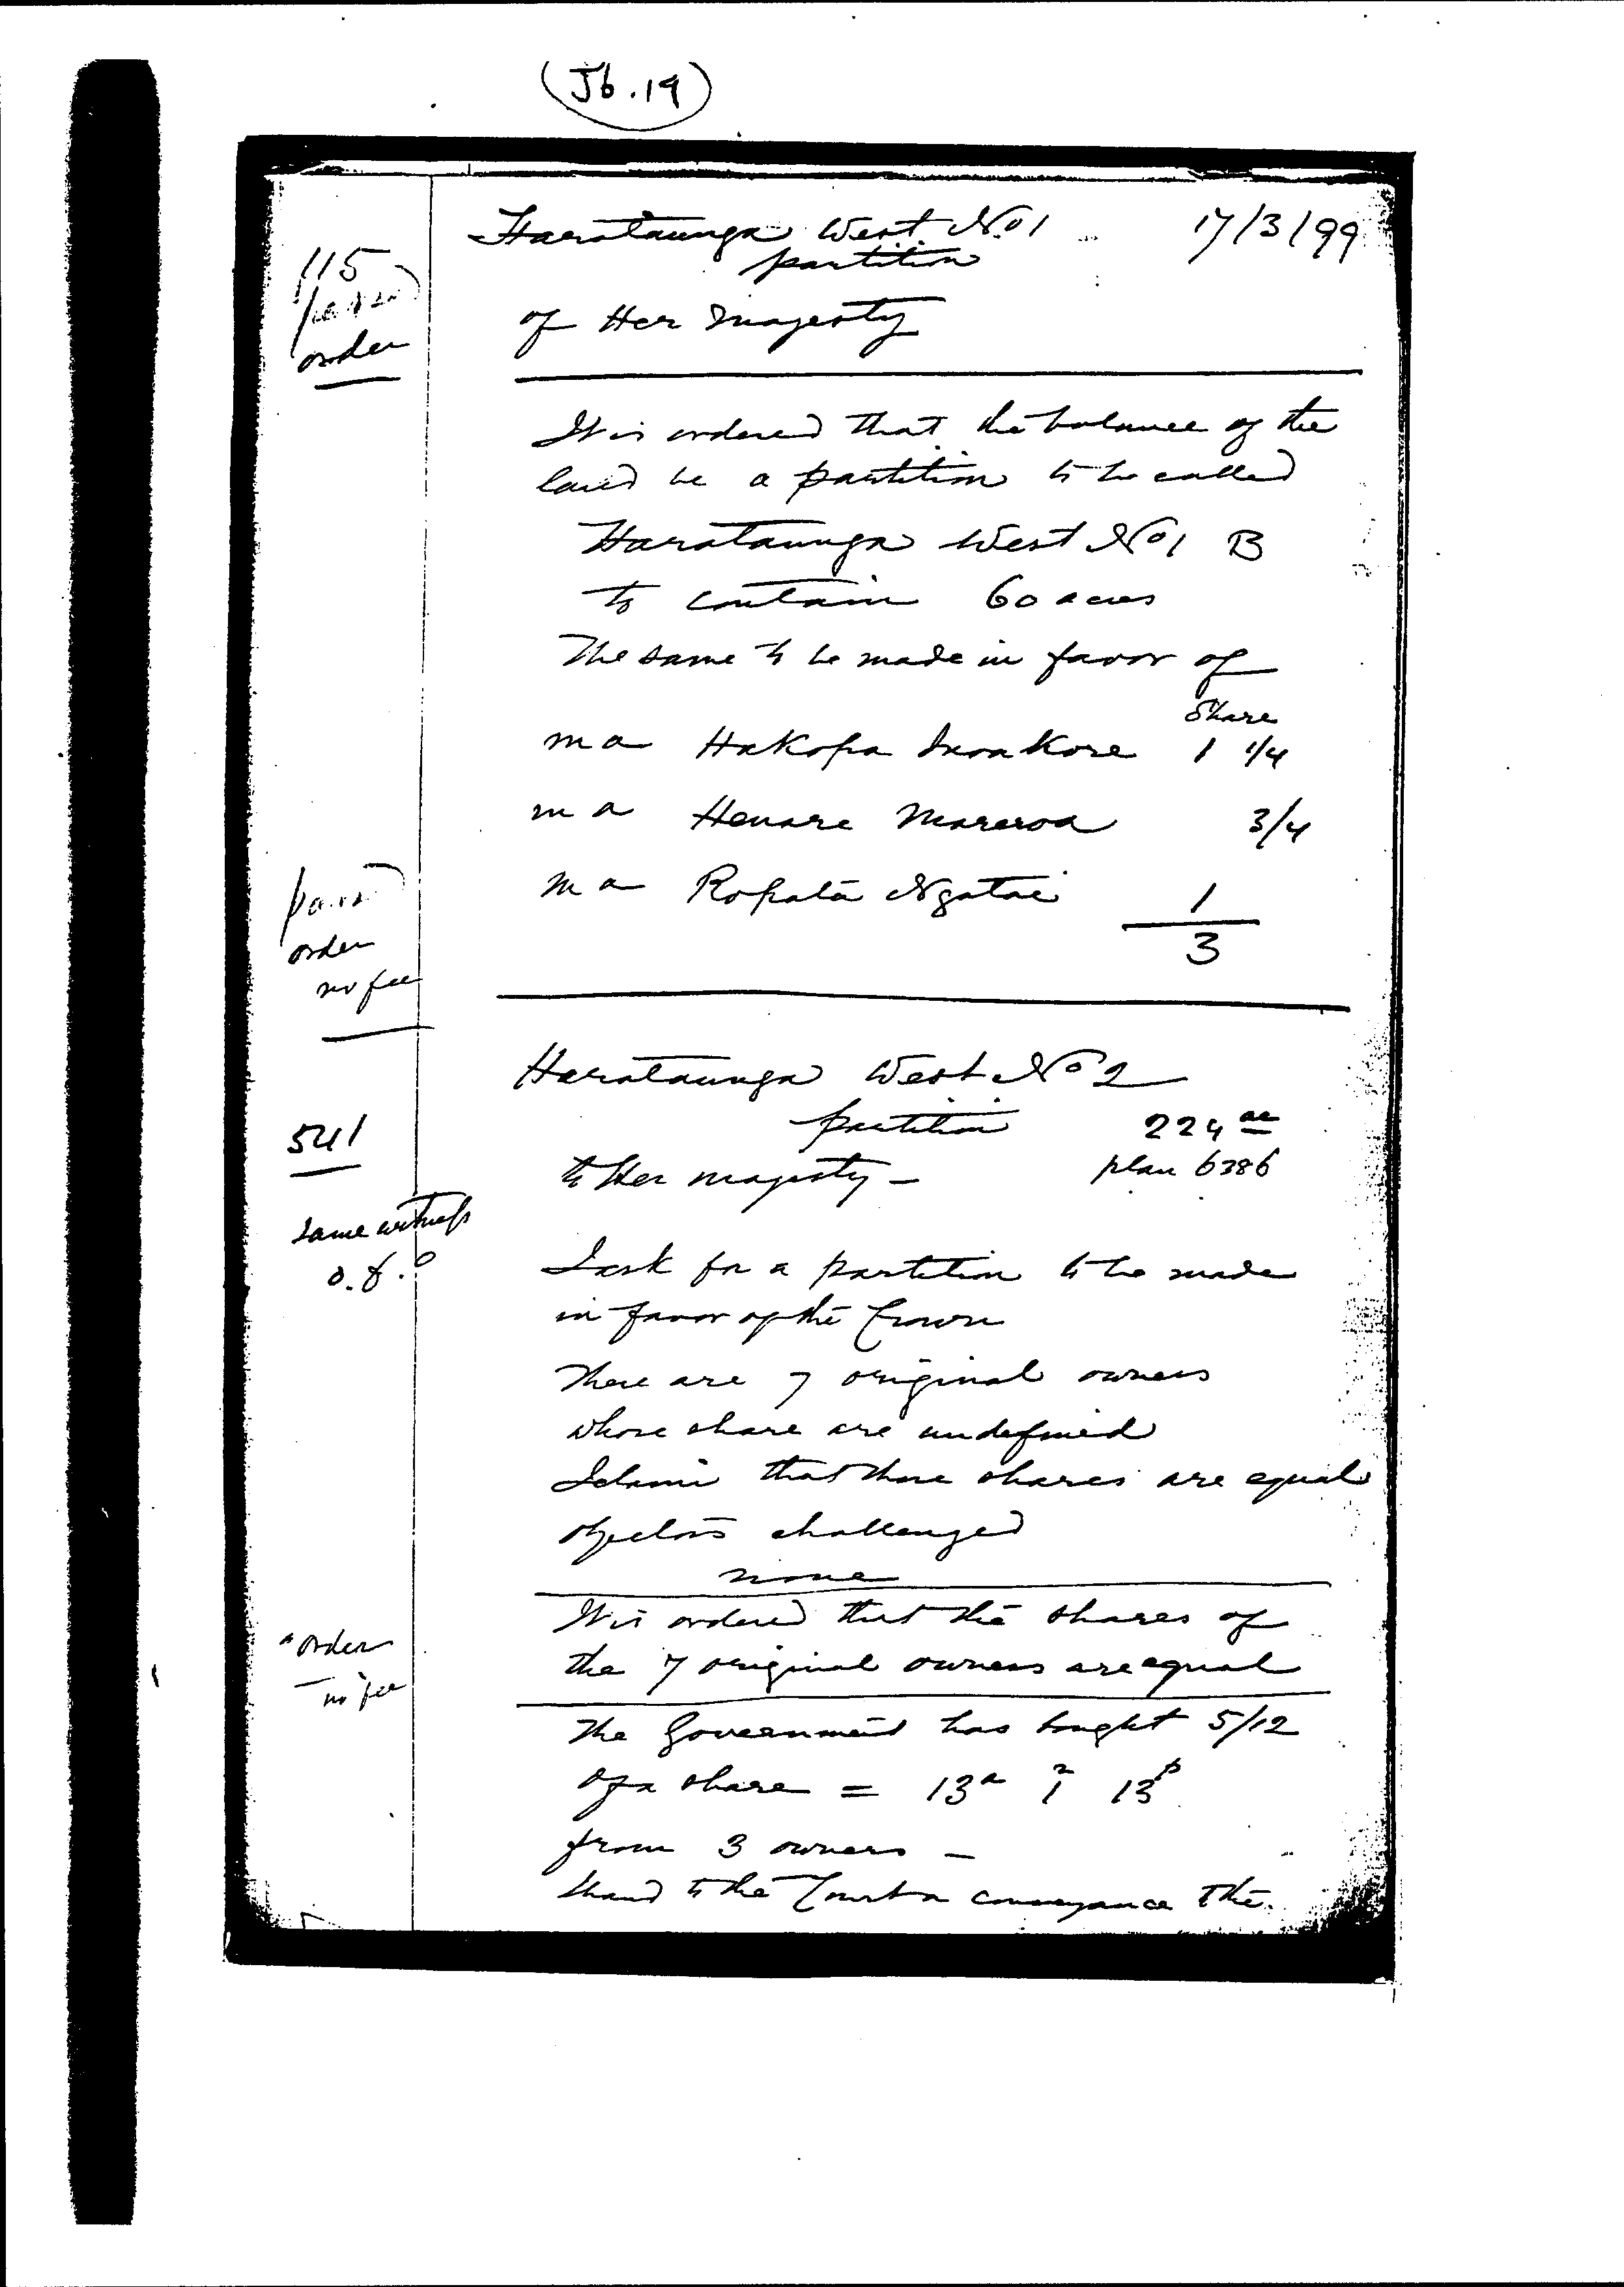 (Jb.19)
Harataunga West No 1 17/3/99
partition
115
order
of Her Majesty
It is ordered that the balance of the
land be a partition to be called
Harataunga West No 1 B
to contain 60 acres
The same to be made in favor of
Share
m a Hakopa 1 1/4
m a Henare Mareroa 3/4
m a Ropata Ngatai 1
3
order
no fee
Harataunga West No 2
partition 224 ac
541
to Her Majesty - plan 6386
Same witness
o. f. o
I ask for a partition to be made
in favor of the Crown
There are 7 original owners
whose share are undefined
I claim that those shares are equal
objectors challenged
none
It is ordered that the shares of
order
the 7 original owners are equal
no fee
The Government has bought 5/12
of a share = 13a 1r 13p
from 3 owners -
I hand to the Court a conveyance the